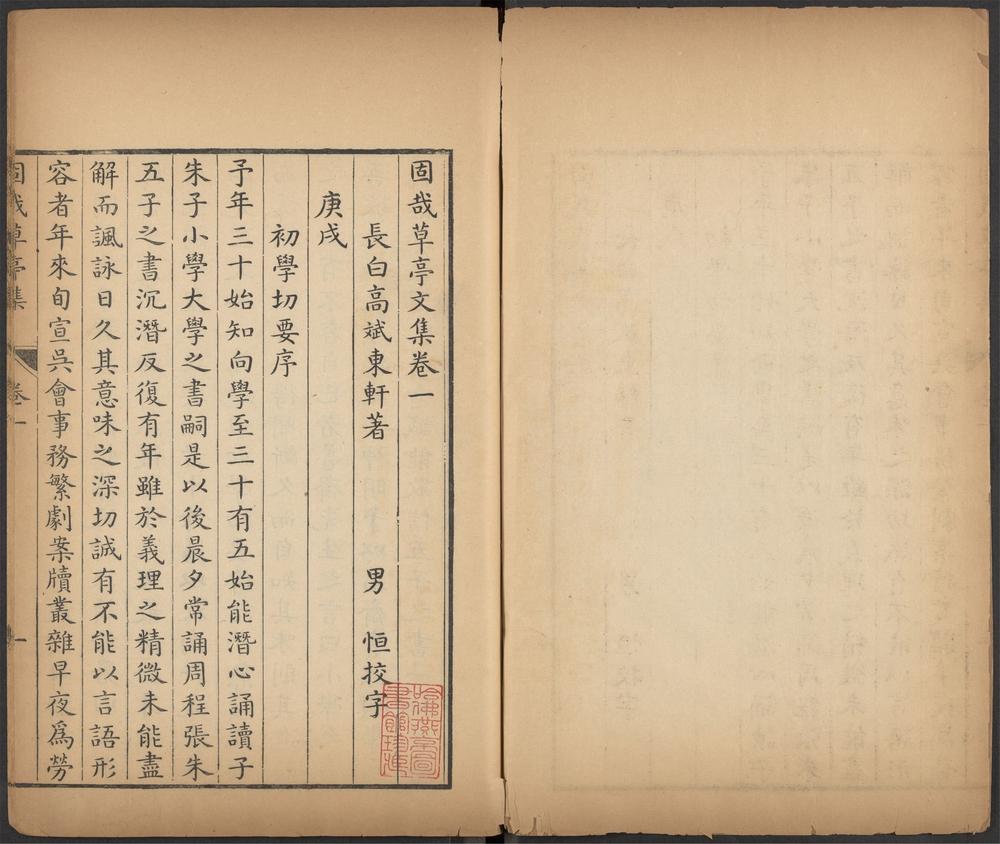 固哉草亭文集卷一
長白高斌東軒著　男　恒挍字
庚戌
初學切要序
予年三十始知向學至三十有五始能潛心誦讀子
朱子小學大學之書嗣是以後晨夕常誦周程張朱
五子之書沉潛反復有年雖於義理之精微未能盡
解而諷詠日久其意味之深切誠有不能以言語形
容者年來旬宣吳會事務繁劇案牘叢雜早夜爲勞
固哉草亭集　卷一　一
哈佛燕京圖書館珍藏